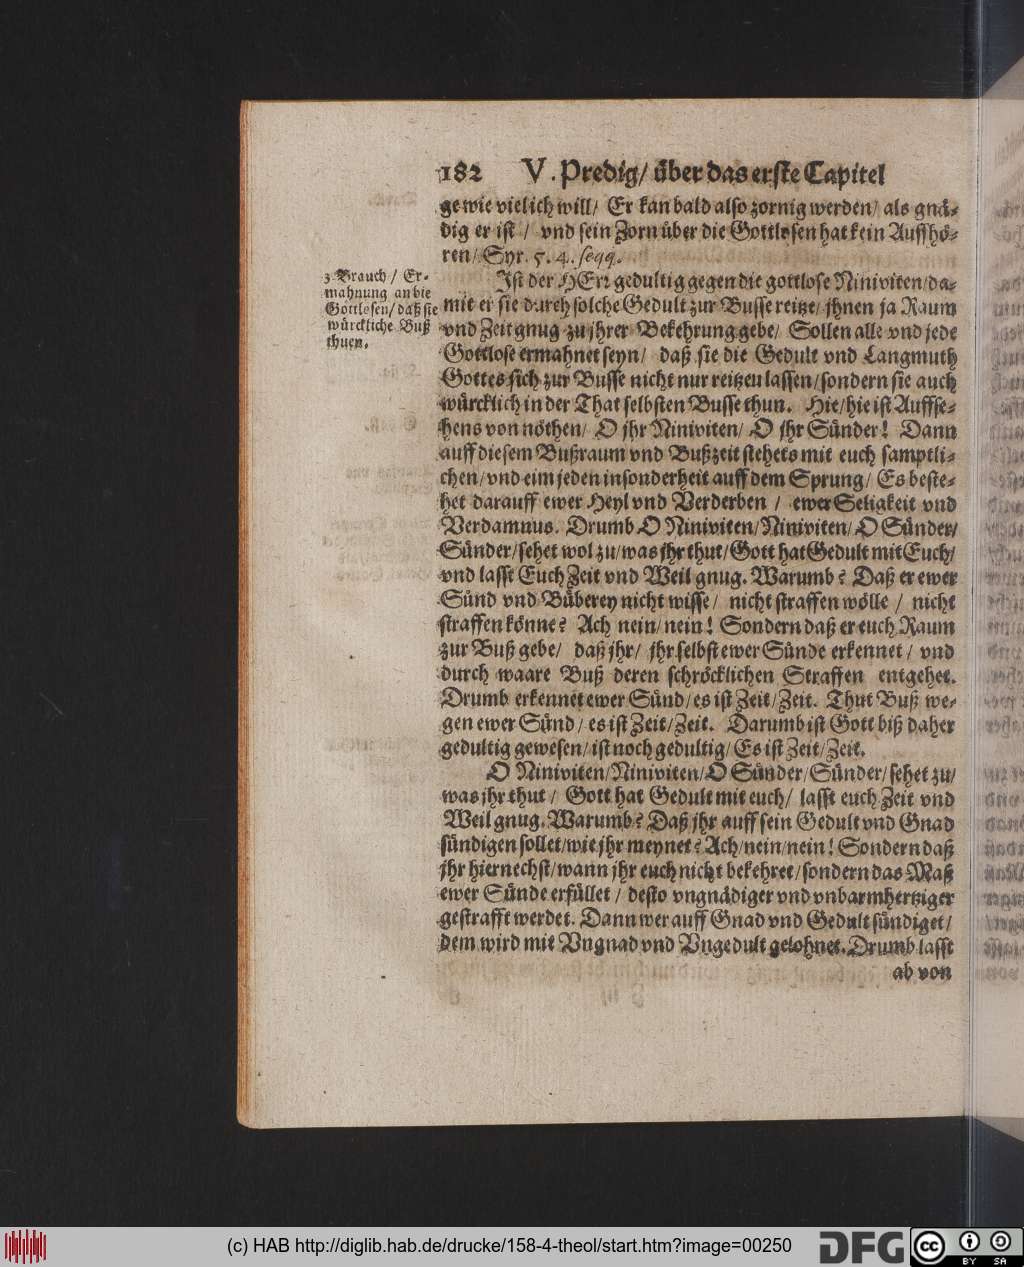 182 V. Predig/ über das erste Capitel
ge wie viel ich will/ Er kan bald also zornig werden/ als gnä-
dig er ist / vnd sein Zorn über die Gottlosen hat kein Auffhö-
ren/ Syr. 5. 4. seqq.
3. Brauch / Er-
mahnung an die
Gottlosen/ daß sie
würckliche Buß
thuen.
Ist der HErr gedultig gegen die gottlose Niniviten/ da-
mit er sie durch solche Gedult zur Busse reitze/ jhnen ja Raum
vnd Zeit gnug zu jhrer Bekehrung gebe/ Sollen alle vnd jede
Gottlose ermahnet seyn/ daß sie die Gedult vnd Langmuth
Gottes sich zur Busse nicht nur reitzen lassen/ sondern sie auch
würcklich in der That selbsten Busse thun. Hie/ hie ist Auffse-
hens von nöthen/ O jhr Niniviten/ O jhr Sünder! Dann
auff diesem Bußraum vnd Bußzeit stehets mit euch samptli-
chen/ vnd eim jeden insonderheit auff dem Sprung/ Es beste-
het darauff ewer Heyl vnd Verderben / ewer Seligkeit vnd
Verdamnus. Drumb O Niniviten/ Niniviten/ O Sünder/
Sünder/ sehet wol zu/ was jhr thut/ Gott hat Gedult mit Euch/
vnd lasst Euch Zeit vnd Weil gnug. Warumb? Daß er ewer
Sünd vnd Büberey nicht wisse/ nicht straffen wölle / nicht
straffen könne? Ach nein/ nein! Sondern daß er euch Raum
zur Buß gebe/ daß jhr/ jhr selbst ewer Sünde erkennet / vnd
durch waare Buß deren schröcklichen Straffen entgehet.
Drumb erkennet ewer Sünd/ es ist Zeit/ Zeit. Thut Buß we-
gen ewer Sünd/ es ist Zeit/ Zeit. Darumb ist Gott biß daher
gedultig gewesen/ ist noch gedultig/ Es ist Zeit/ Zeit.
O Niniviten/ Niniviten/ O Sünder/ Sünder/ sehet zu/
was jhr thut / Gott hat Gedult mit euch/ lasst euch Zeit vnd
Weil gnug. Warumb? Daß jhr auff sein Gedult vnd Gnad
sündigen sollet/ wie jhr meynet? Ach/ nein/ nein! Sondern daß
jhr hiernechst/ wann jhr euch nicht bekehret/ sondern das Maß
ewer Sünde erfüllet / desto vngnädiger vnd vnbarmhertziger
gestrafft werdet. Dann wer auff Gnad vnd Gedult sündiget/
dem wird mit Vngnad vnd Vngedult gelohnet. Drumb lasst
ab von
(c) HAB http://diglib.hab.de/drucke/158-4-theol/start.htm?image=00250
DFG
cc BY SA